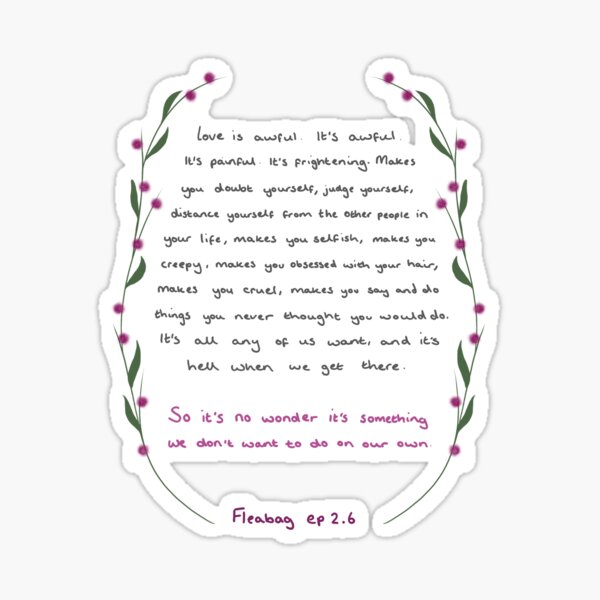 Love is awful. It's awful.
It's painful. It's frightening. Makes
you doubt yourself, judge yourself,
distance yourself from the other people in
your life, makes you selfish, makes you
creepy, makes you obsessed with your hair,
makes you cruel, makes you say and do
things you never thought you would do.
It's all any of us want, and it's
hell when we get there.
So it's no wonder it's something
we don't want to do on our own.
Fleabag ep 2.6